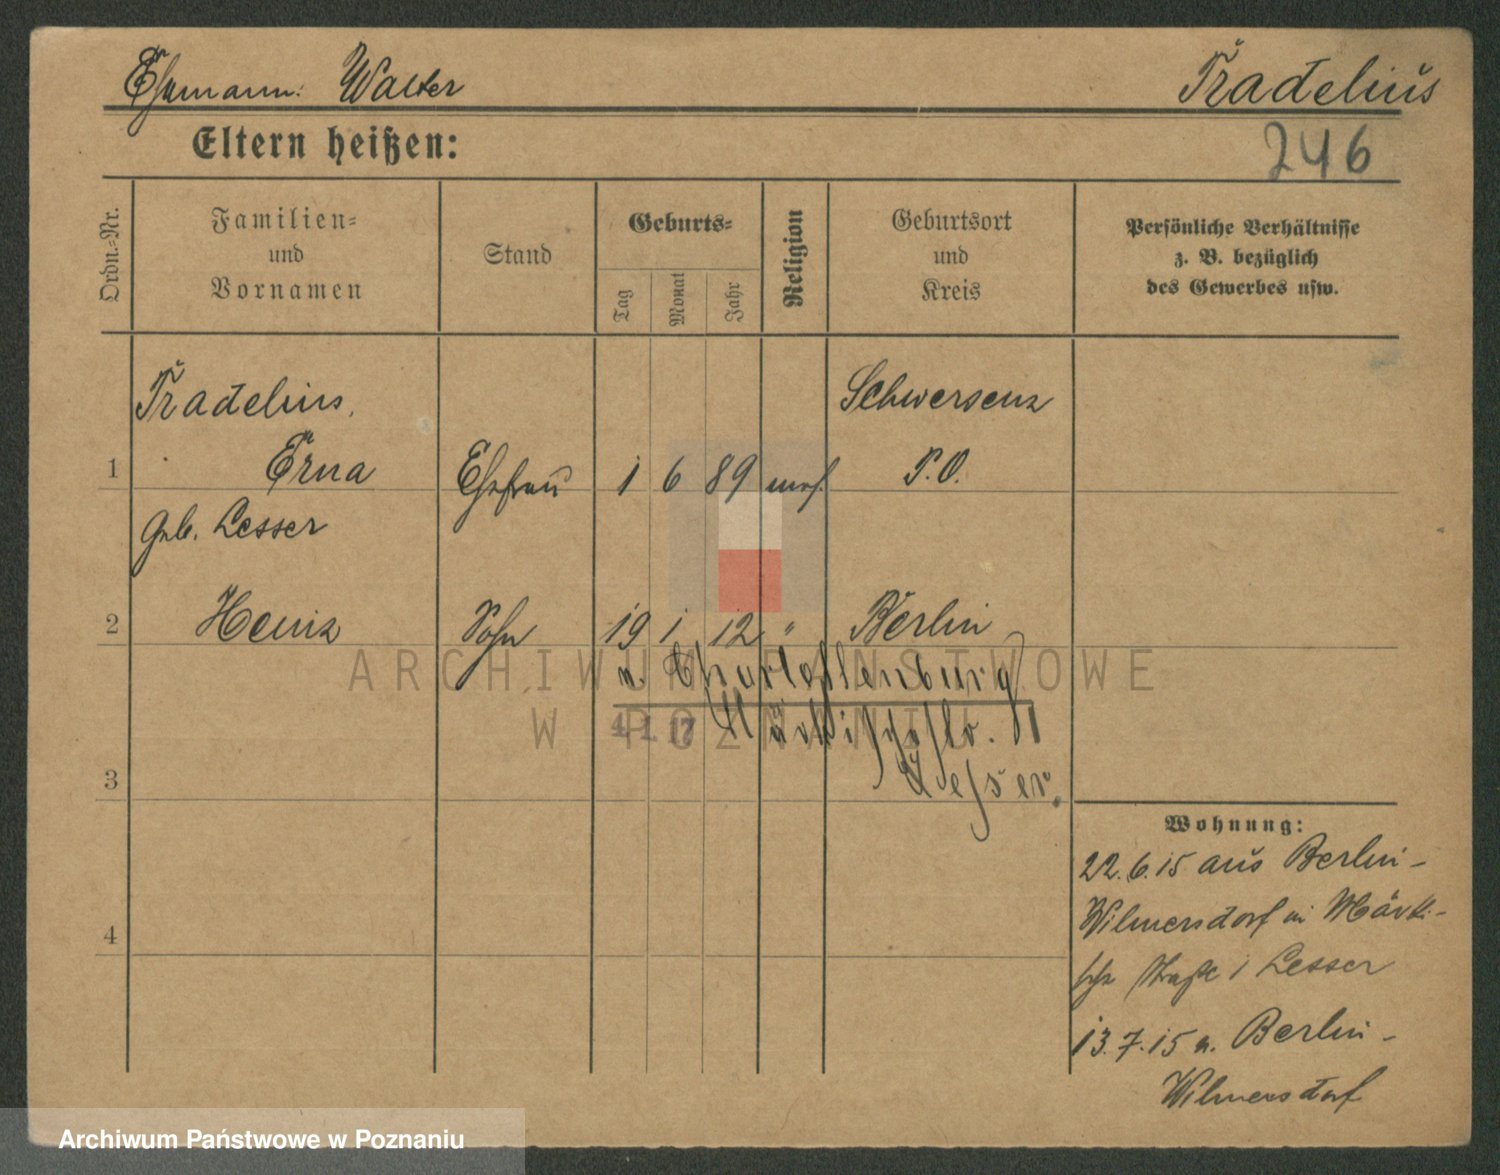 Ehemann: Walter Tradelius
Eltern heißen:
246
Ordn.=Nr.
Familien=
und
Vornamen
Stand
Geburts=
Tag
Monat
Jahr
Religion
Geburtsort
und
Kreis
Persönliche Verhältnisse
z. B. bezüglich
des Gewerbes usw.
Tradelius,
Schwersenz
1 Erna Ehefrau 1 6 89 mos. P.O.
geb. Lesser
2 Heinz Sohn 19 1 12 " Berlin
n. Charlottenburg
4.1.17
3
Lesser.
4
Wohnung:
22.6.15 aus Berlin-
Wilmersdorf in Märki-
sche Straße 1 Lesser
13.7.15 n. Berlin-
Wilmersdorf
ARCHIWUM PAŃSTWOWE
W POZNANIU
Archiwum Państwowe w Poznaniu